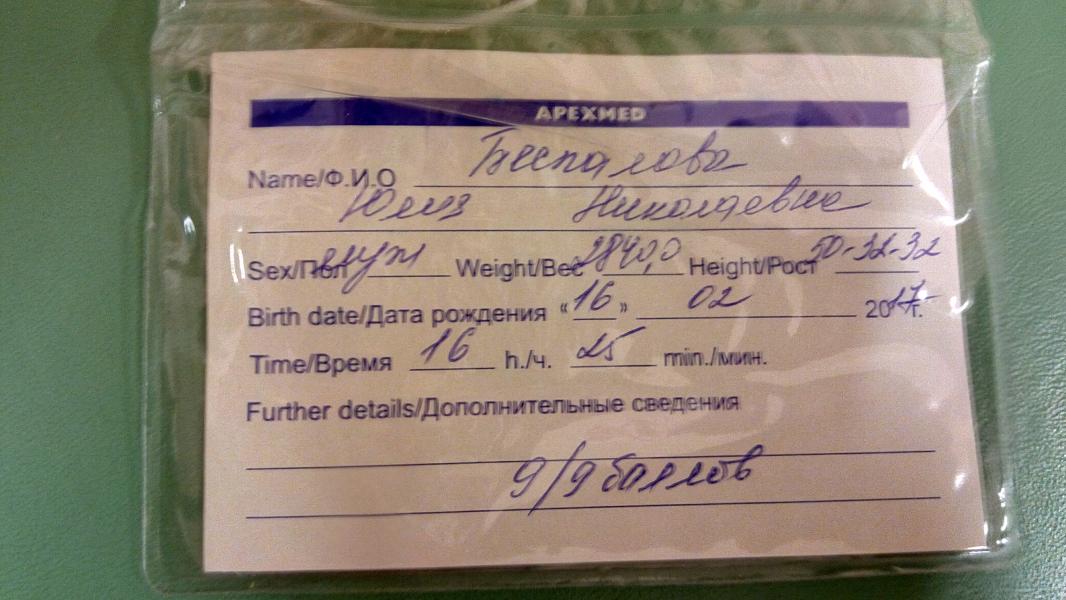 APEXMED
Name/Ф.И.О Беспалова
Юлия Николаевна
Sex/Пол муж Weight/Вес 2840,0 Height/Рост 50-32-32
Birth date/Дата рождения «16» 02 2017г.
Time/Время 16 h./ч. 25 min./мин.
Further details/Дополнительные сведения
9/9 баллов